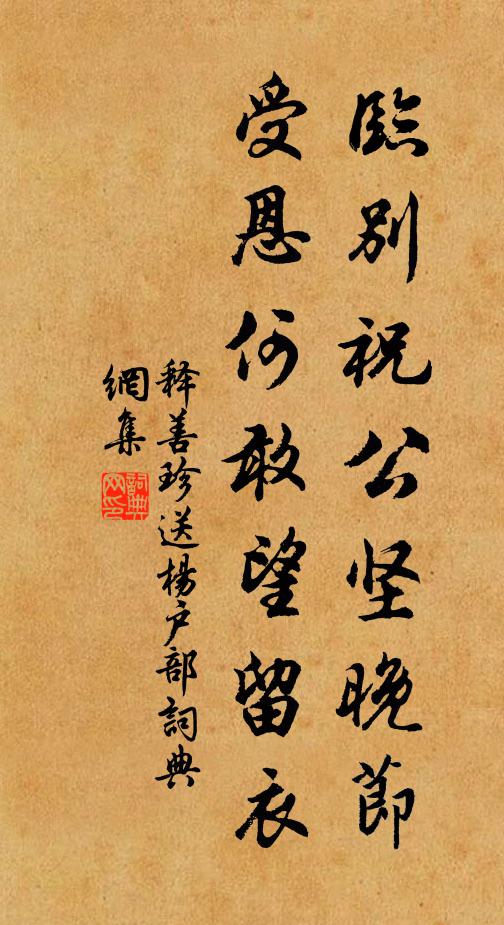 臨別祝公坚晚節
受恩何敢望留衣
释善珍送楊户部詞典
網集
詞典
网印